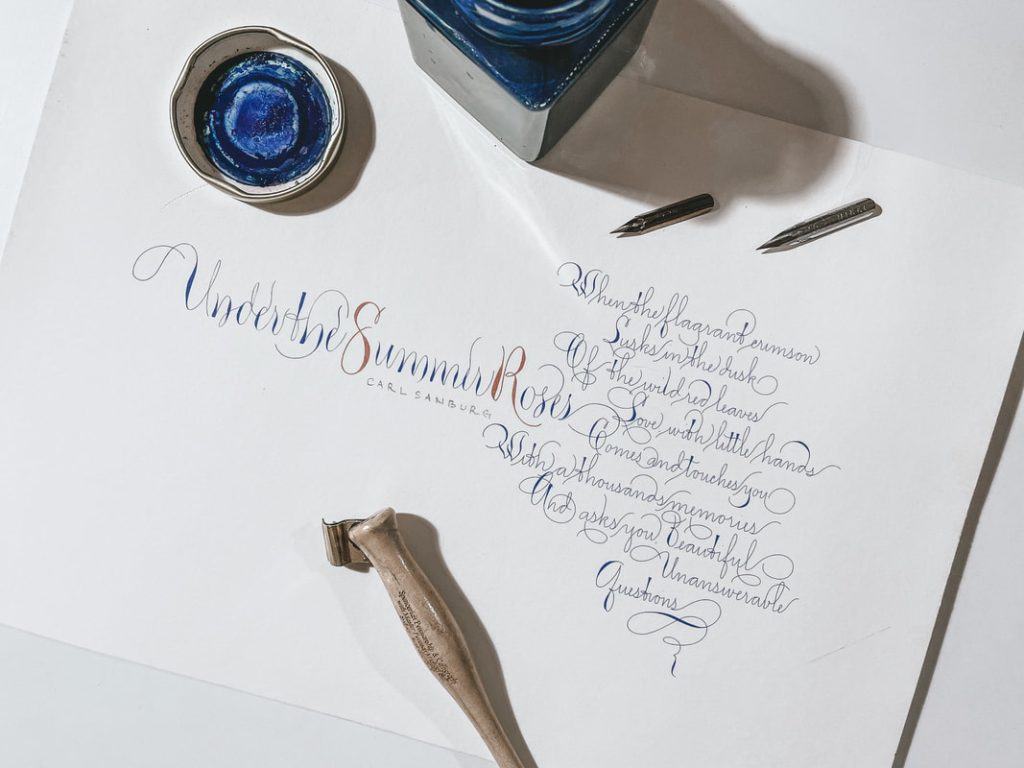 Under the Summer Roses
CARL SANBURG
When the flagrant crimson
Lusks in the dusk
Of the wild red leaves
Love with little hands
Comes and touches you
With a thousands memories
And asks you Beautiful
Unanswerable
Questions